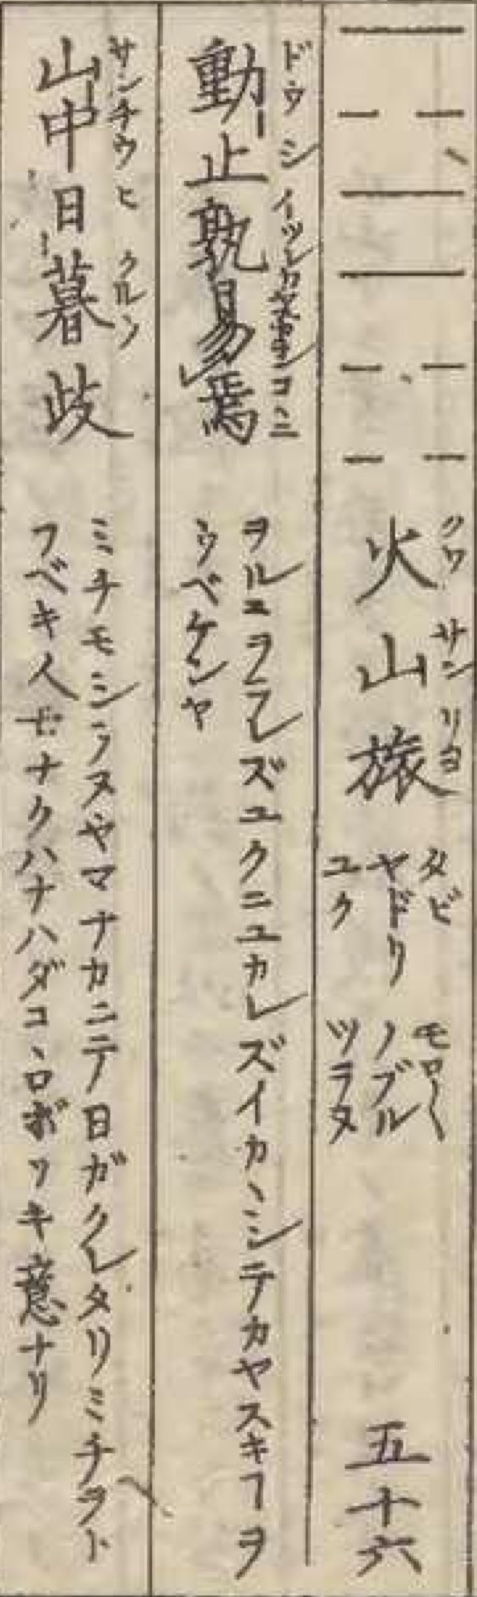 火山旅 五十六
クワ サン リヨ
タビ モロ〱
ヤドリ ノブル
ユク ツラヌ
動止孰易焉
ドウ シ イツレカ コヽニ
ヲルニヲラレズユクニユカレズイカヽシテカヤスキヿヲ
ウベケンヤ
山中日暮歧
サンチウ ヒ クルヽ
ミチモシラヌヤマナカニテ日ガクレタリミチヲト
フベキ人モナクハナハダコヽロボソキ意ナリ